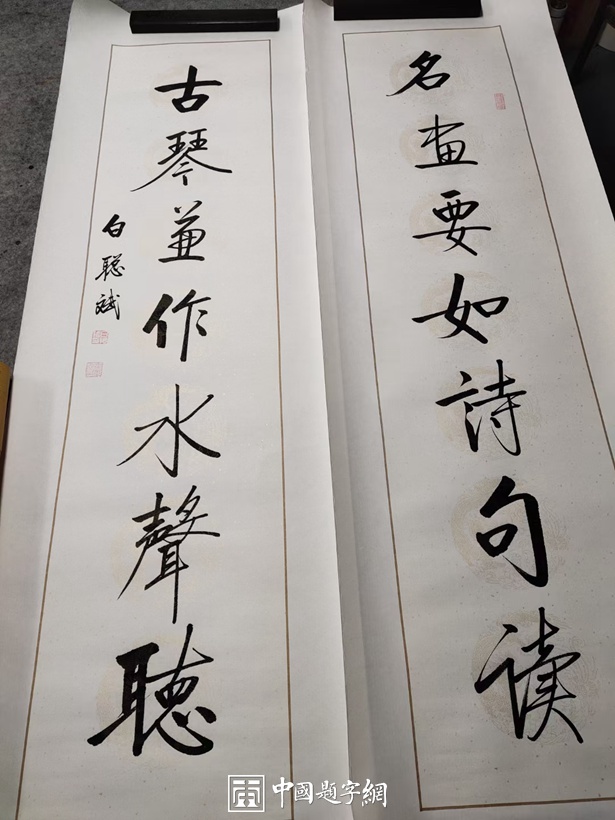 名畫要如詩句读
古琴兼作水聲聽
白聪斌
中國題字網